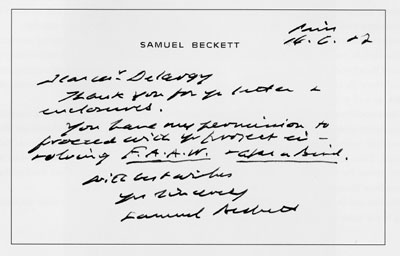 SAMUEL BECKETT
Paris
16.6.82
Dear Mr Delavoy
Thank you for yr letter +
enclosures.
You have my permission to
proceed with yr project in-
volving F.A.A.W. +
With best wishes
Yrs sincerely
Samuel Beckett